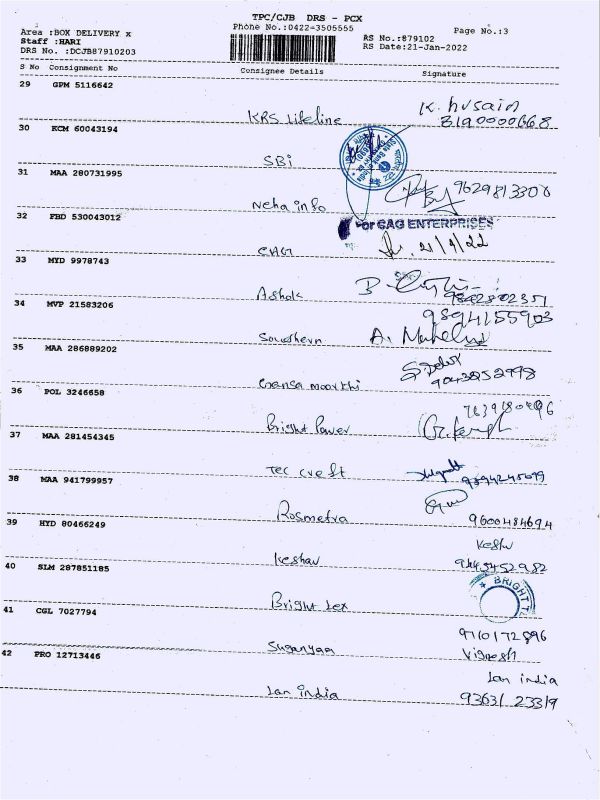 TPC/CJB DRS - PCX
Phone No.:0422-3505555
Area :BOX DELIVERY x
Staff :HARI
DRS No. :DCJB87910203
RS No.:879102
RS Date:21-Jan-2022
Page No.:3
S No Consignment No Consignee Details Signature
29 GPM 5116642
KRS Lifeline
K. Husain
8190000668
30 KCM 60043194
SBI
31 MAA 280731995
Neha info
9629813300
32 FBD 530043012
For CAG ENTERPRISES
CAG
21/1/22
33 MYD 9978743
Ashok
9842802351
34 MVP 21583206
9894155903
Southern
35 MAA 286889202
Gansa moorthi
9043252998
36 POL 3246658
Bright Power
37 MAA 281454345
Tec creft
38 MAA 941799957
Rosmetra
9600484694
39 HYD 80466249
Keshav
40 SLM 287851185
Bright tex
BRIGHT
41 CGL 7027794
9710172896
Suganyaa
Vignesh
42 PRO 12713446
Ian india
Ian india
9363123319